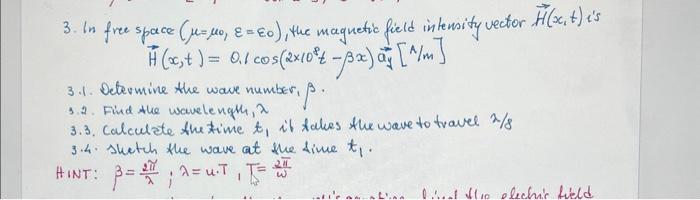 3. In free space (μ=μ0, ε=ε0), the magnetic field intensity vector H⃗(x,t) is
H⃗(x,t) = 0.1 cos(2×10⁸t - βx) a⃗y [A/m]
3.1. Determine the wave number, β.
3.2. Find the wavelength, λ
3.3. Calculate the time t₁ it takes the wave to travel λ/8
3.4. Sketch the wave at the time t₁.
HINT: β = 2π/λ ; λ = u·T , T = 2π/ω
electric field